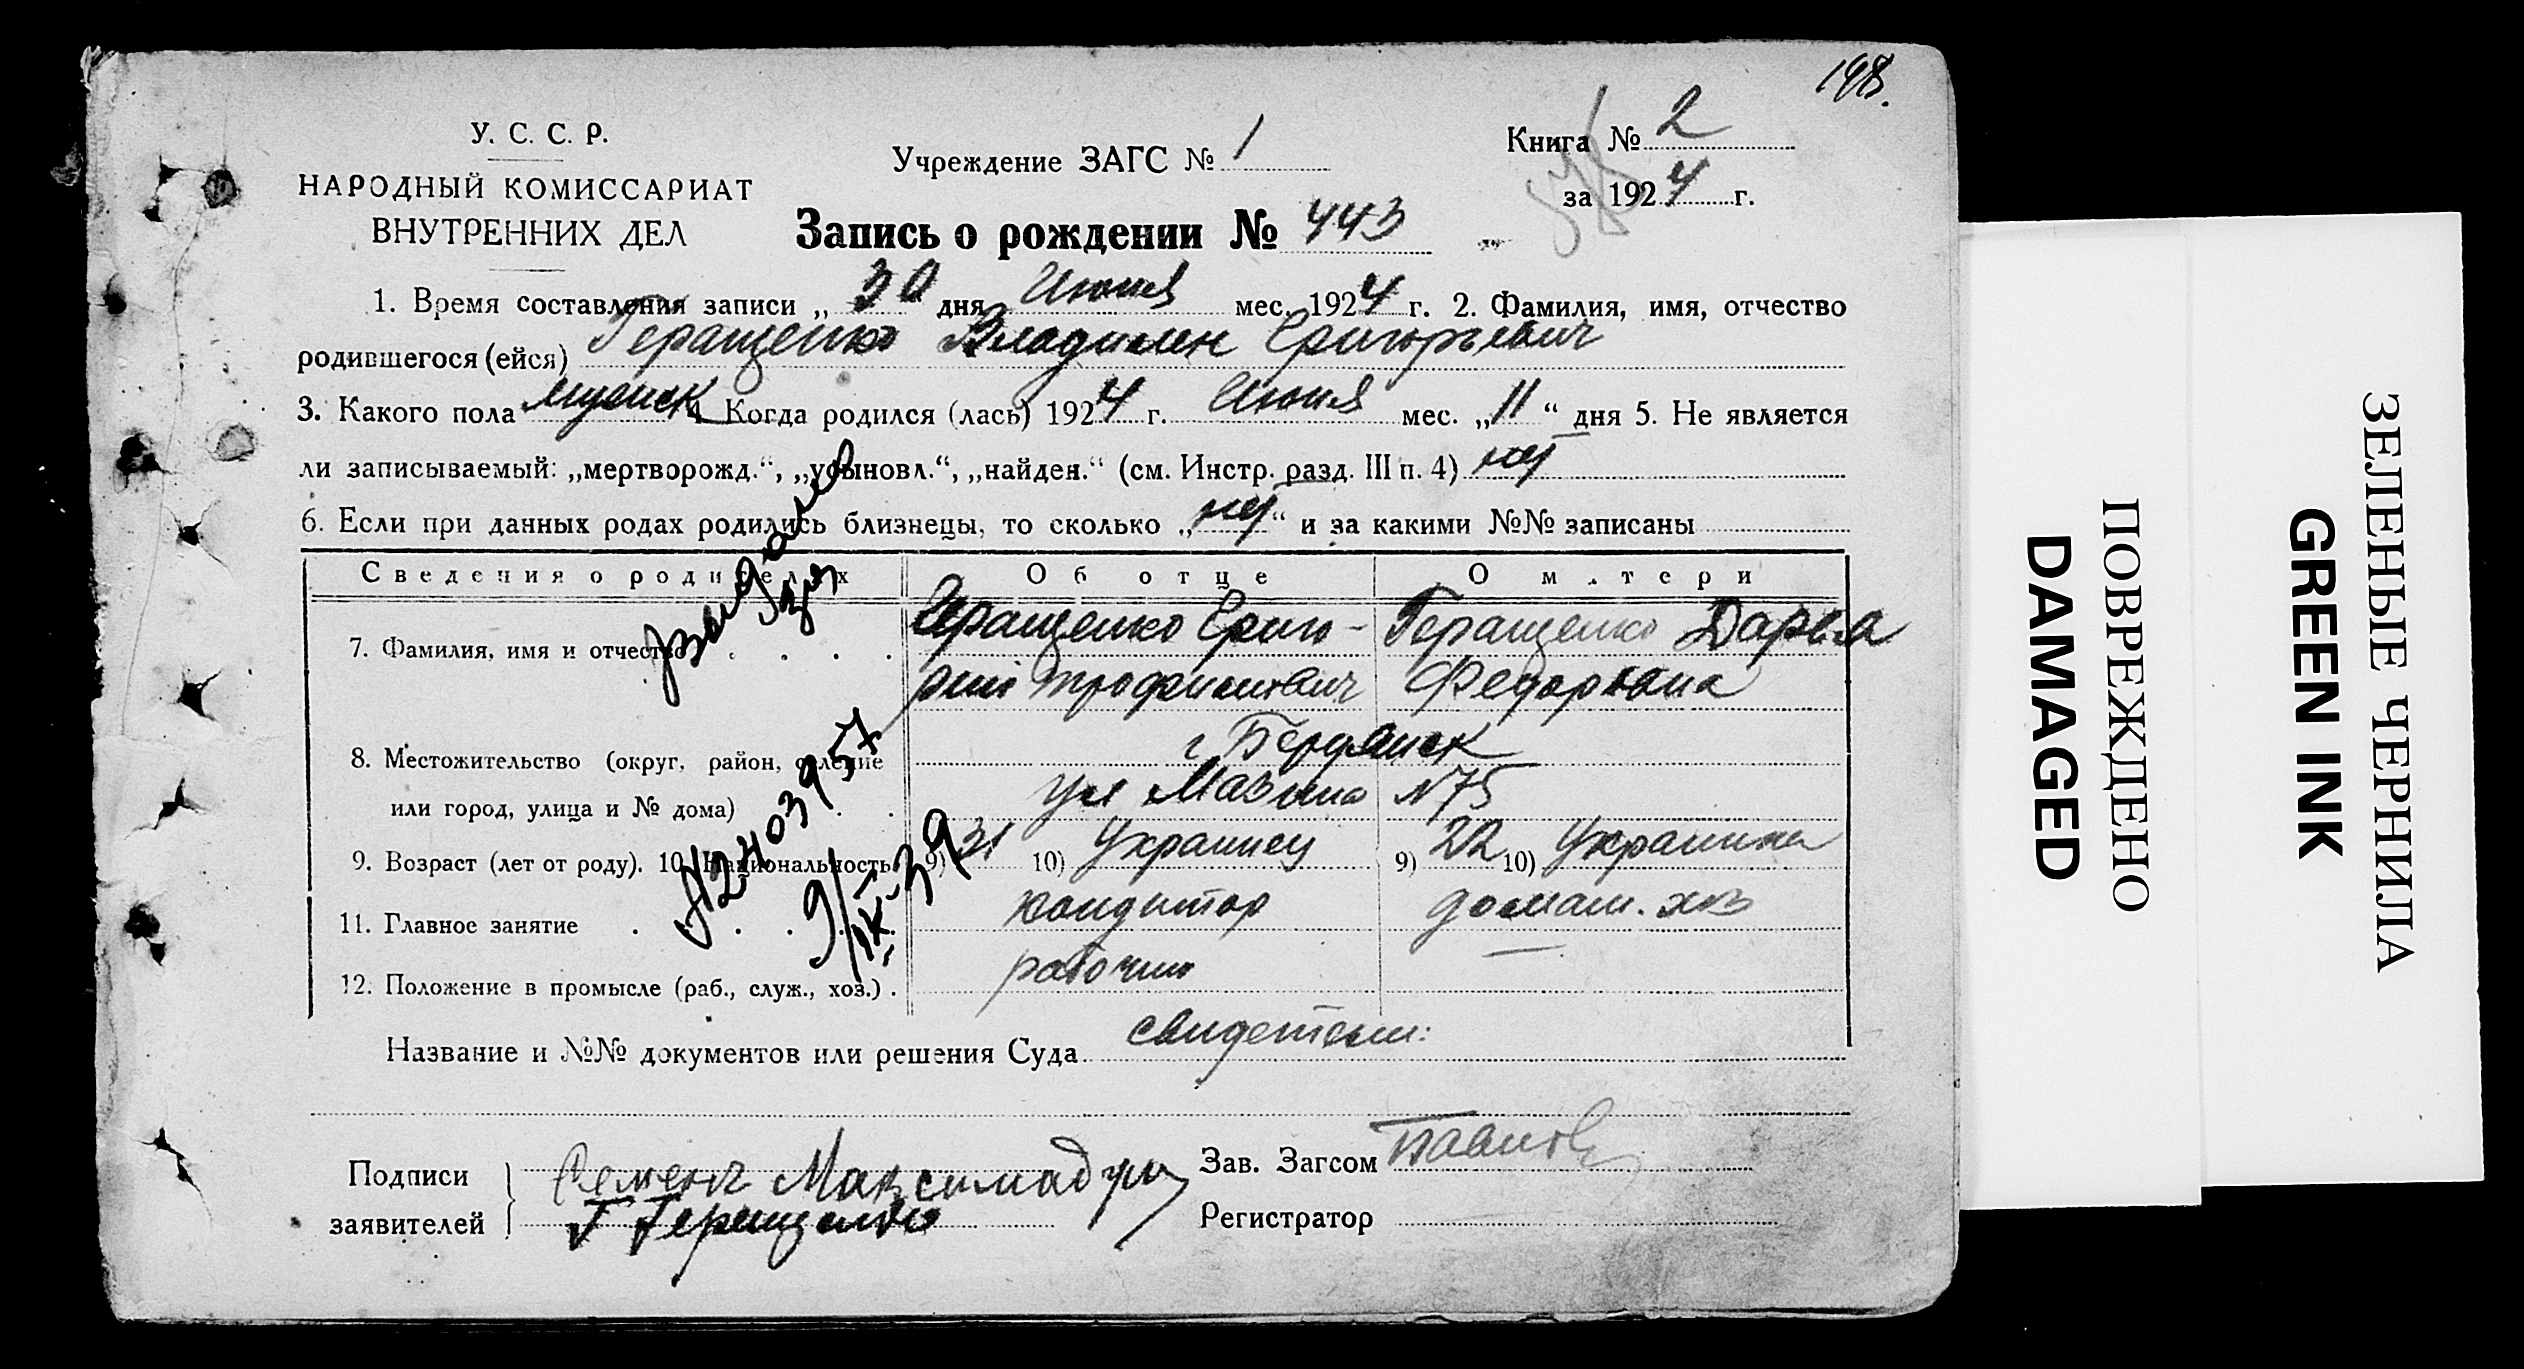 198.
У. С. С. Р.
НАРОДНЫЙ КОМИССАРИАТ
ВНУТРЕННИХ ДЕЛ
Учреждение ЗАГС № 1
Книга № 2
за 1924 г.
Запись о рождении № 443
1. Время составления записи „ 30 дня Июня мес. 1924 г. 2. Фамилия, имя, отчество
родившегося (ейся) Геращенко Владилен Григорьевич
3. Какого пола мужск 4. Когда родился (лась) 1924 г. Июня мес. „11“ дня 5. Не является
ли записываемый: „мертворожд.“, „усыновл.“, „найден.“ (см. Инстр. разд. III п. 4) нет
6. Если при данных родах родились близнецы, то сколько „нет“ и за какими №№ записаны
Сведения о родителях Об отце О матери
7. Фамилия, имя и отчество Геращенко Григо- Геращенко Дарья
рий Трофимович Федоровна
8. Местожительство (округ, район, селение г Бердянск
или город, улица и № дома) ул Мазина N 75
9. Возраст (лет от роду). 10. Национальность 9) 31 10) Украинец 9) 22 10) Украинка
11. Главное занятие кондитор домаш. хоз
12. Положение в промысле (раб., служ., хоз.) рабочий —
Название и №№ документов или решения Суда свидетели:
Подписи
заявителей
Семенъ
Г Геращенко
Зав. Загсом
Регистратор
N2403957
9/IX-39
ПОВРЕЖДЕНО
DAMAGED
ЗЕЛЕНЫЕ ЧЕРНИЛА
GREEN INK